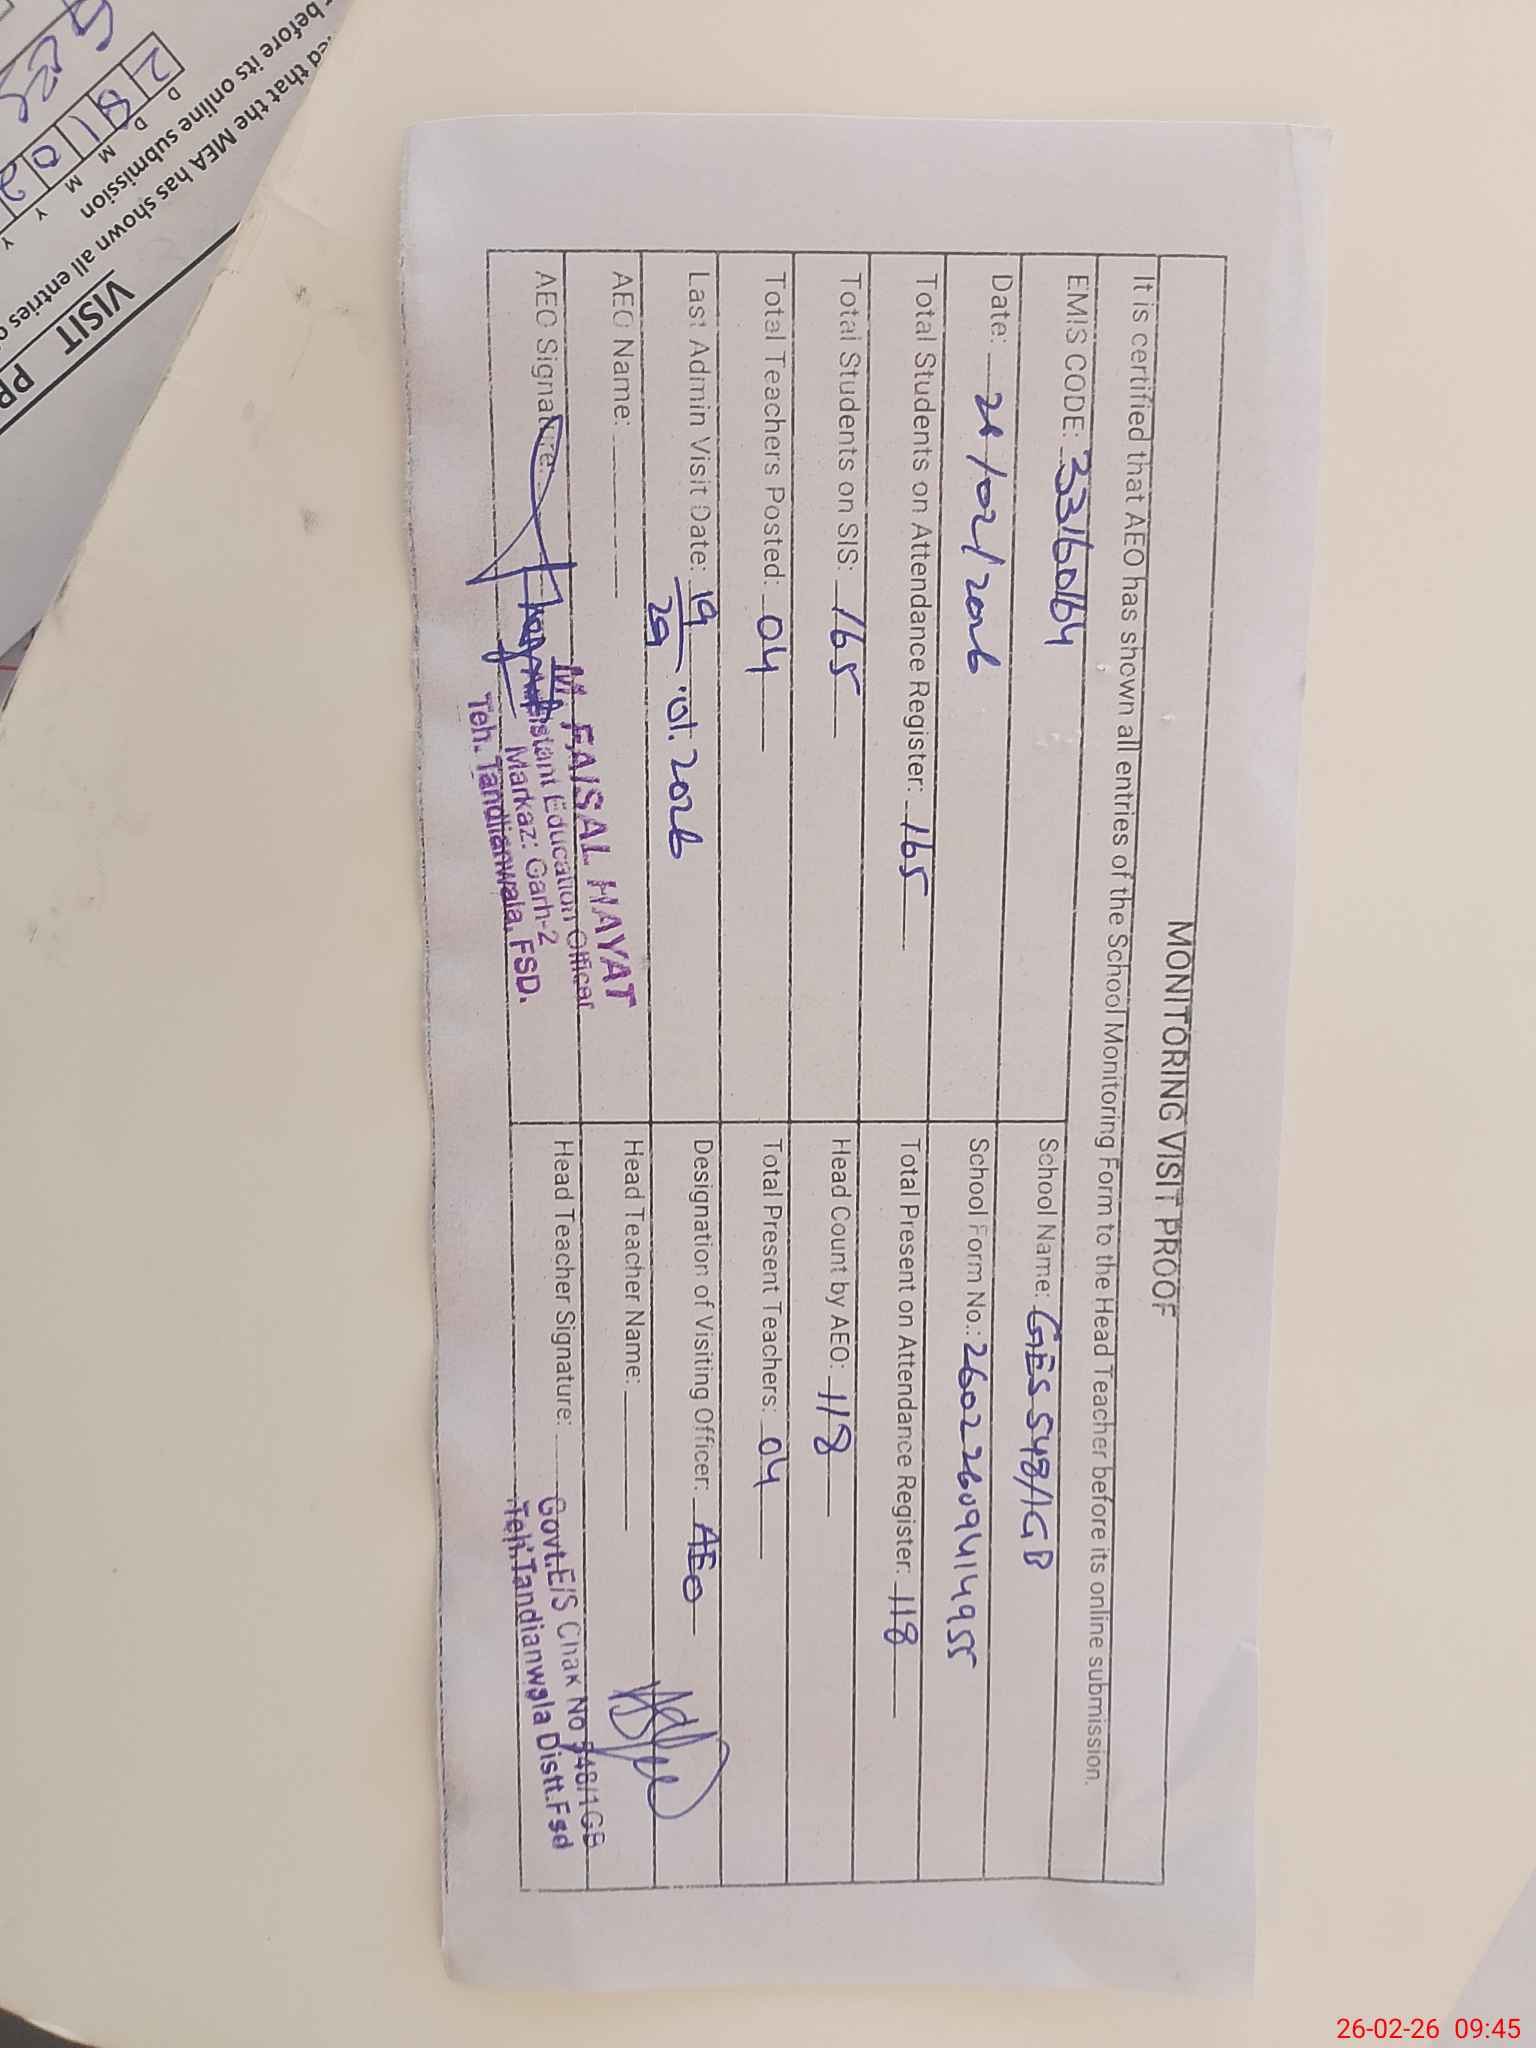 MONITORING VISIT PROOF
It is certified that AEO has shown all entries of the School Monitoring Form to the Head Teacher before its online submission.
EMIS CODE: 33160164
School Name: GES 548/1GB
Date: 26/02/2026
School Form No.: 260226094114955
Total Students on Attendance Register: 165
Total Present on Attendance Register: 118
Total Students on SIS: 165
Head Count by AEO: 118
Total Teachers Posted: 04
Total Present Teachers: 04
Last Admin Visit Date: 19/29 .01.2026
Designation of Visiting Officer: AEO
AEO Name:
Head Teacher Name:
AEO Signature:
Head Teacher Signature:
M. FAISAL HAYAT
Assistant Education Officer
Markaz: Garh-2
Teh. Tandlianwala, FSD.
Govt.E/S Chak No 548/1GB
Teh.Tandianwala Distt.Fsd
VISIT PR
ed that the MEA has shown all entries
before its online submission
D D M M Y Y
26-02-26 09:45